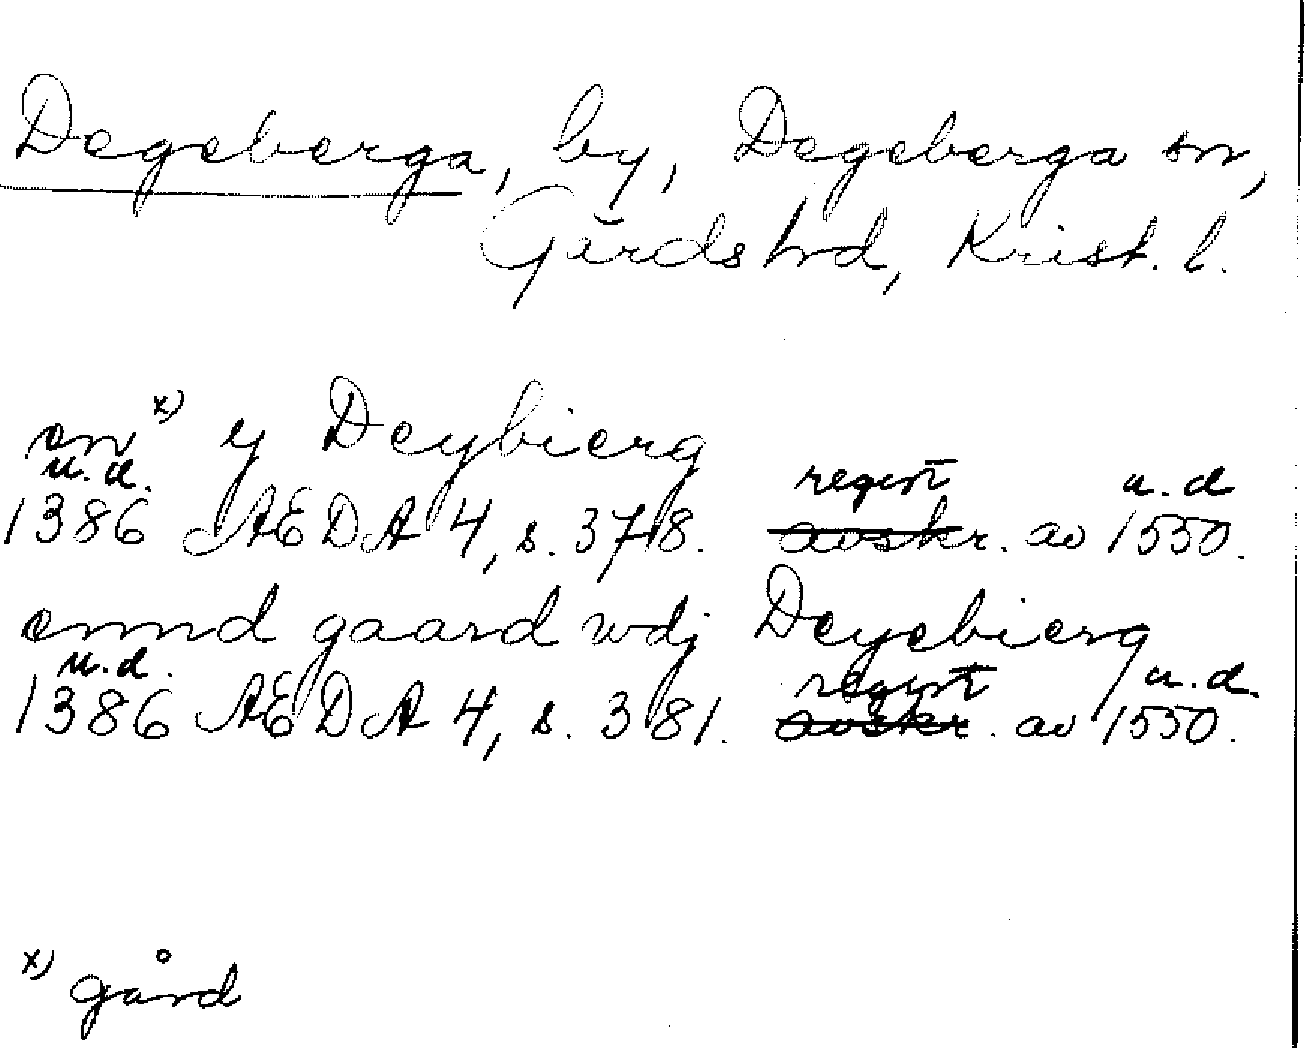 Degeberga, by, Degeberga sn,
Gärds hd, Krist. l.
en x) y Deybierg
u.d. regist u.d
1386 ÆDA 4, s. 378. avskr. av 1550.
ennd gaard wdj Deyebierg
u.d. regist u.d.
1386 ÆDA 4, s. 381. avskr. av 1550.
x) gård